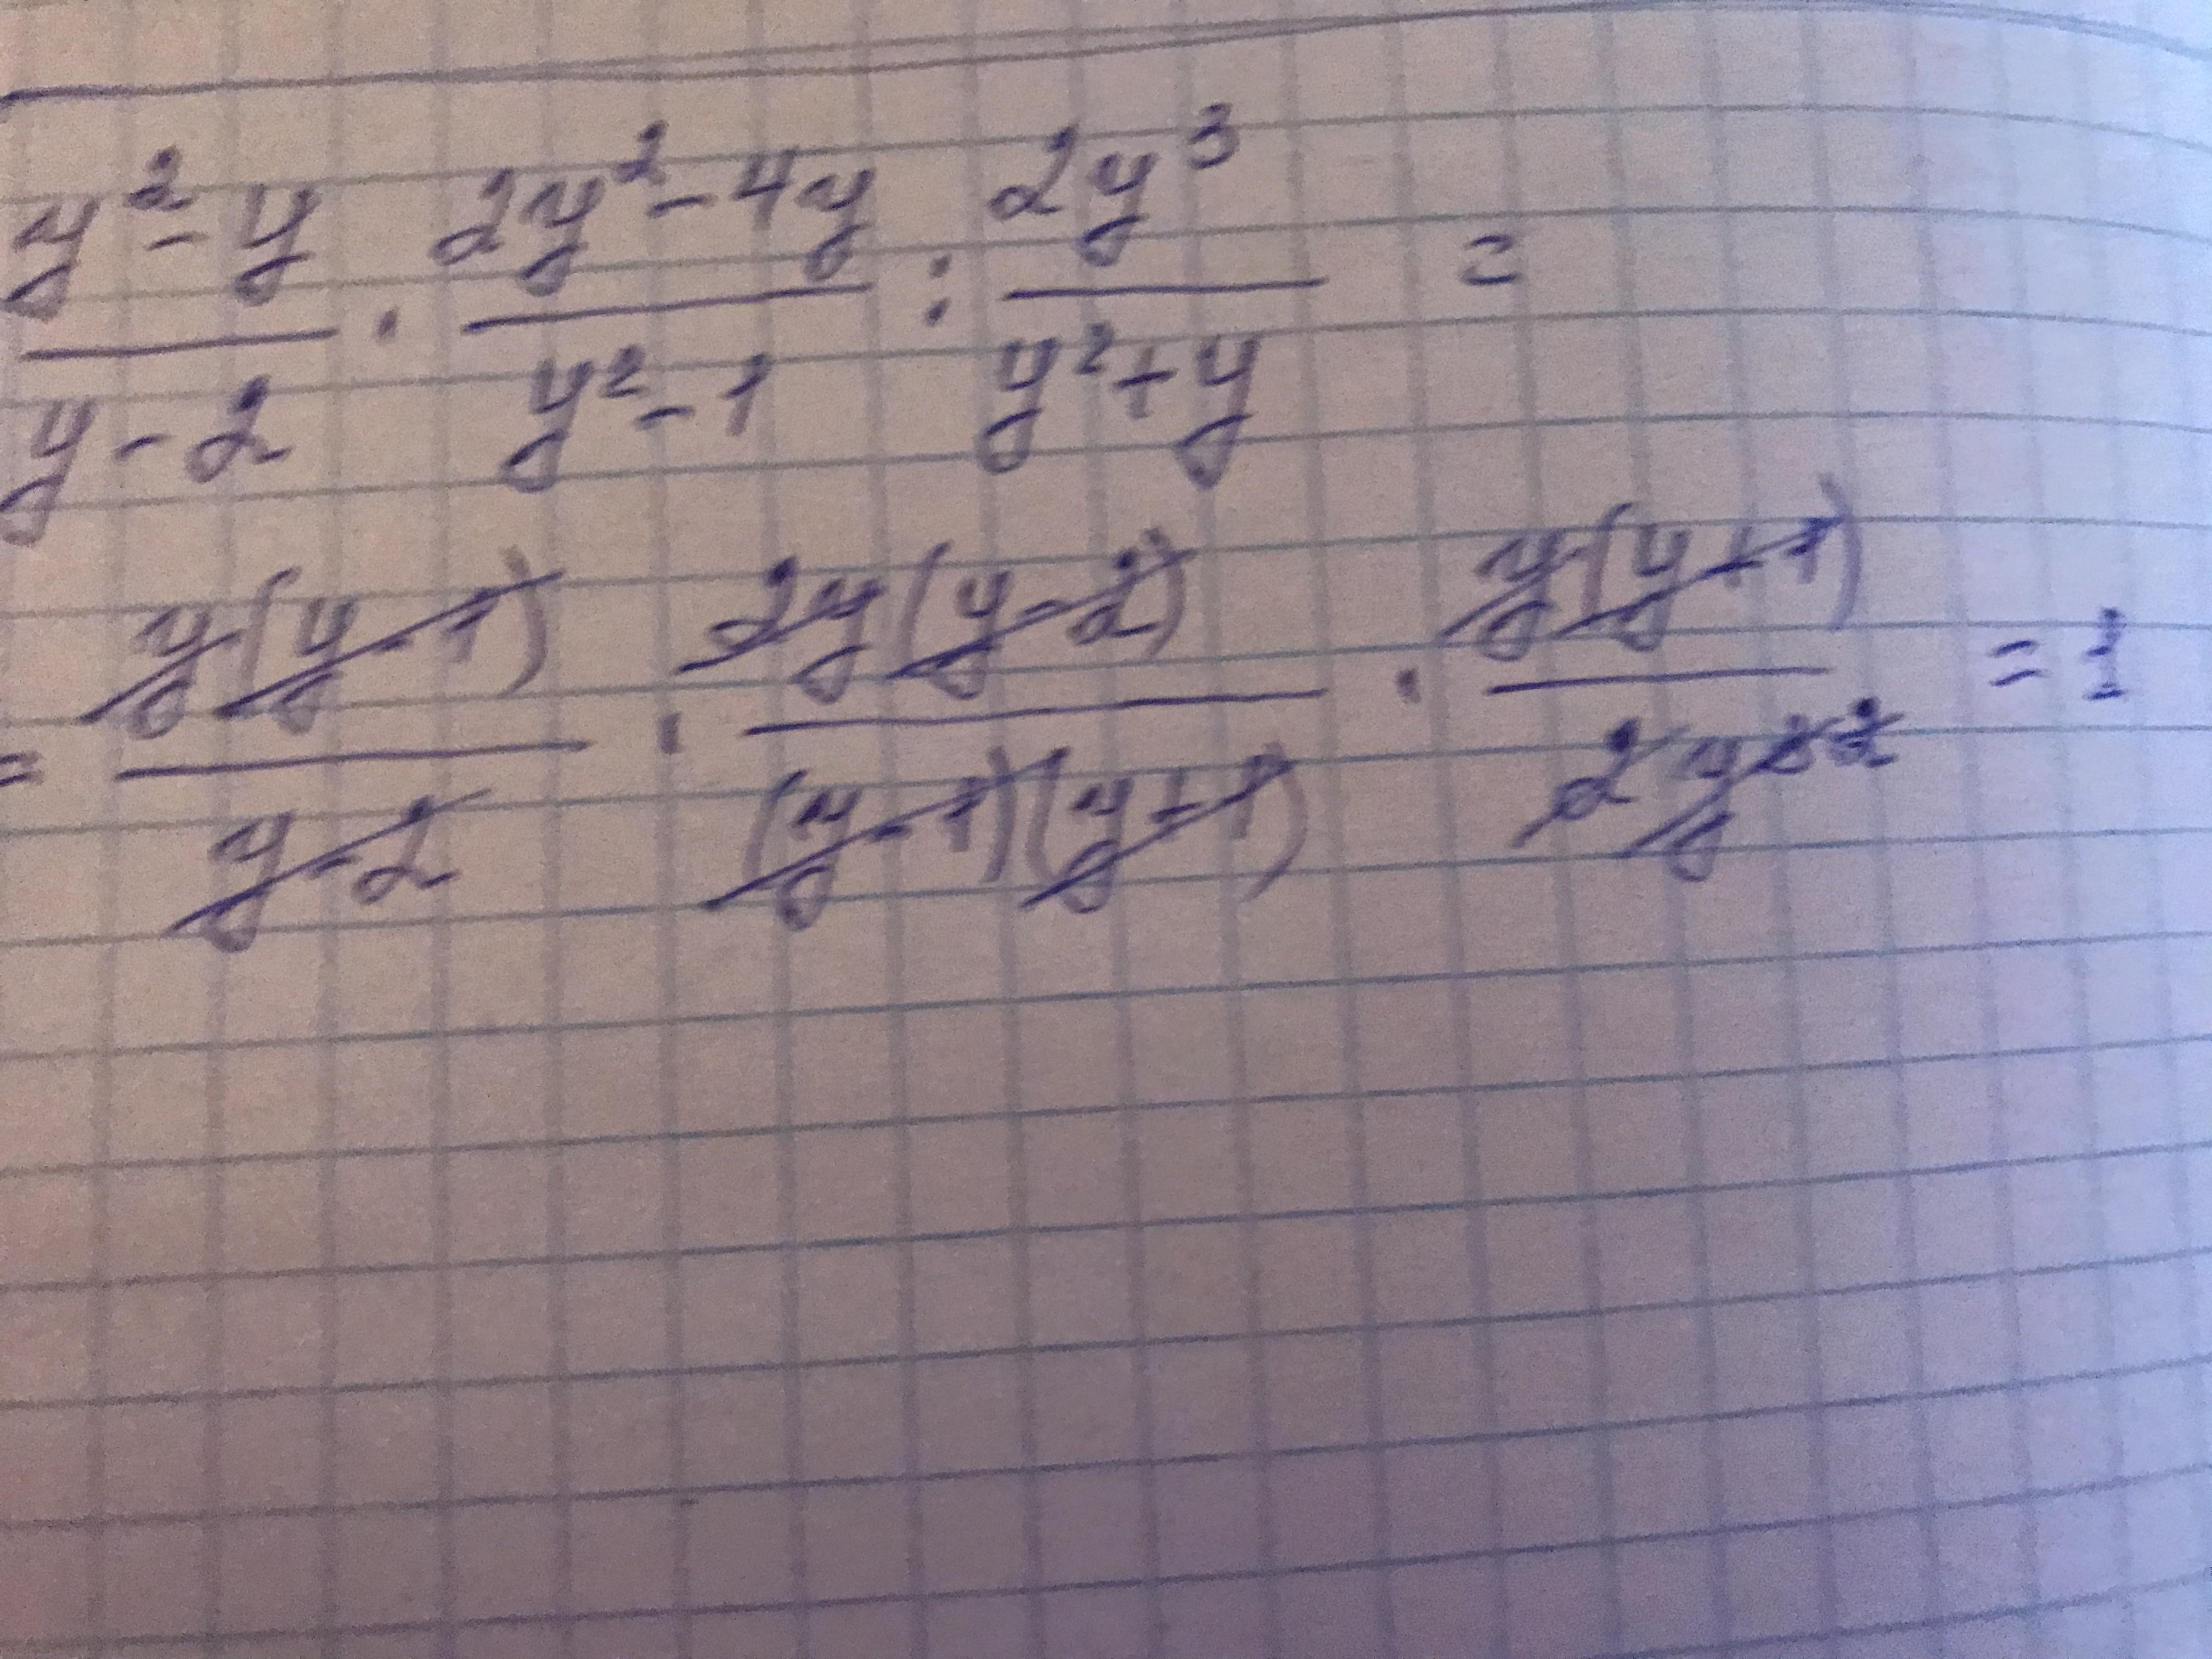 (y² - y)/(y - 2) · (2y² - 4y)/(y² - 1) : (2y³)/(y² + y) =
= (y(y - 1))/(y - 2) · (2y(y - 2))/((y - 1)(y + 1)) · (y(y + 1))/(2y³ ²) = 1